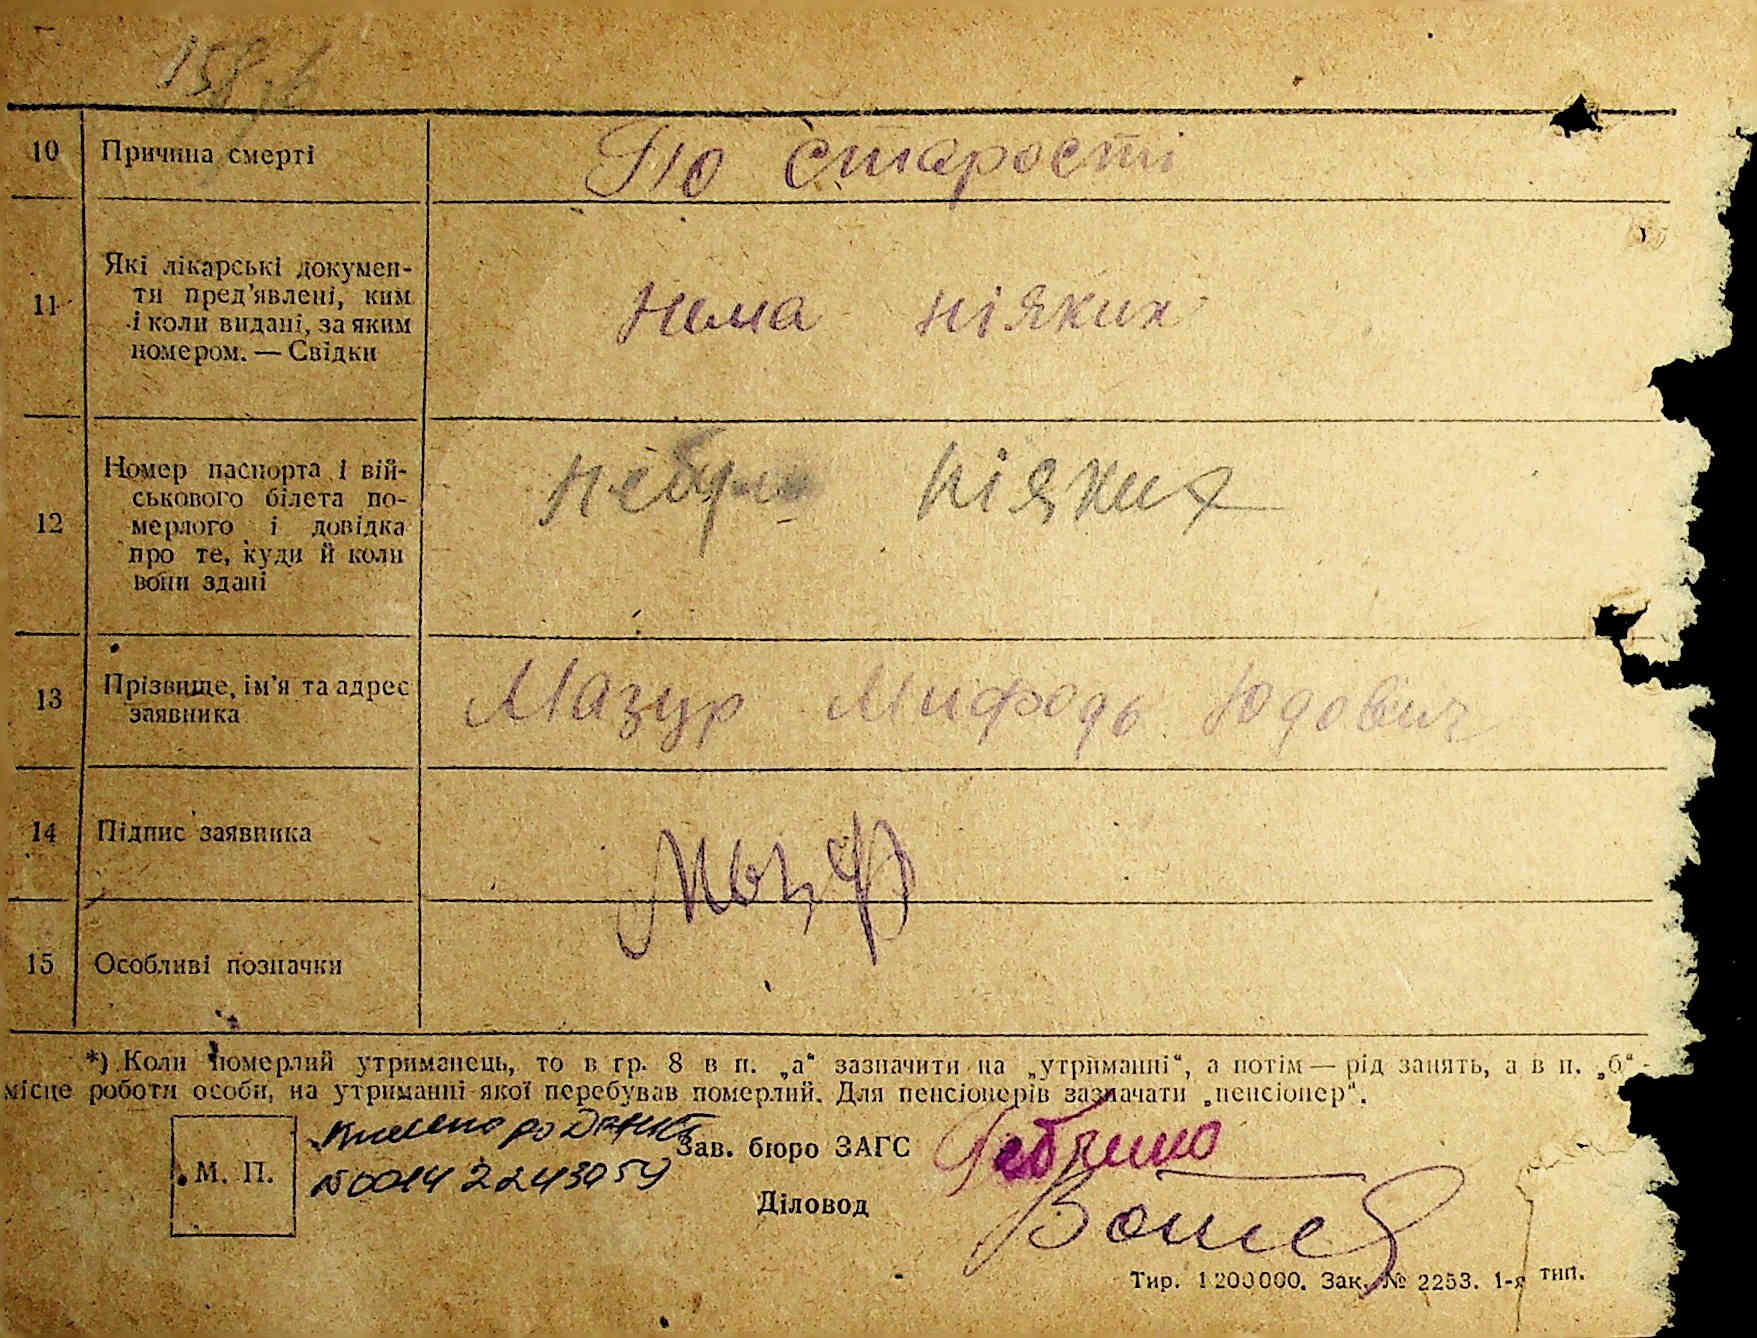 158
10 Причина смерті По старості
11 Які лікарські докумен-
ти пред'явлені, ким
і коли видані, за яким
номером. — Свідки
Нема ніяких
12 Номер паспорта і вій-
ськового білета по-
мерлого і довідка
про те, куди й коли
вони здані
Небуло ніяких
13 Прізвище, ім'я та адрес
заявника
Мазур Мифодь Юдович
14 Підпис заявника
15 Особливі позначки
*) Коли померлий утриманець, то в гр. 8 в п. „а“ зазначити на „утриманні“, а потім — рід занять, а в п. „б“ -
місце роботи особи, на утриманні якої перебував померлий. Для пенсіонерів зазначати „пенсіонер“.
Внесено до ДРАЦС
Зав. бюро ЗАГС
М. П.
№ 0014 2243059
Діловод
Тир. 1200000. Зак. № 2253. 1-я тип.